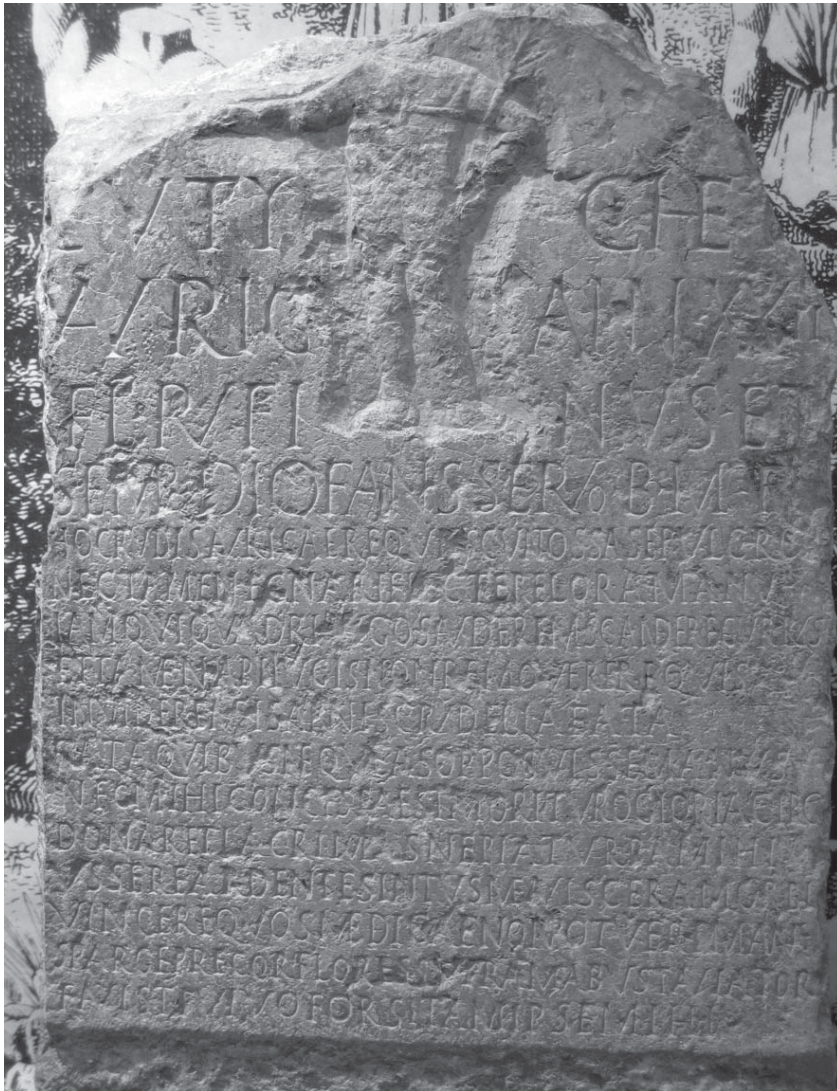 EVTY CHETI
AVRIG ANN XXII
FL RVFI NVS ET
SEMP DIOFANIS SERVO B M F
HOC RVDIS AVRIGAE REQVIESCVNT OSSA SEPVLCRO
NEC TAMEN IGNARI FLECTERE LORA MANV
IAM QVI QVADRIIVGOS AVDEREM SCANDERE CVRRVS
ET TAMEN A BIIVGIS NON REMOVERER EQVIS
INVIDERE MEIS ANNIS CRVDELIA FATA
FATA QVIBVS NEQVEAS OPPOSVISSE MANVS
NEC MIHI CONCESSA EST MORITVRO GLORIA CIRCI
DONARET LACRIMAS NE PIA TVRBA MIHI
VSSERE ARDENTES INTVS MEA VISCERA MORBI
VINCERE QVOS MEDICAE NON POTVERE MANVS
SPARGE PRECOR FLORES SVPRA MEA BVSTA VIATOR
FAVISTI VIVO FORSITAM IPSE MIHI